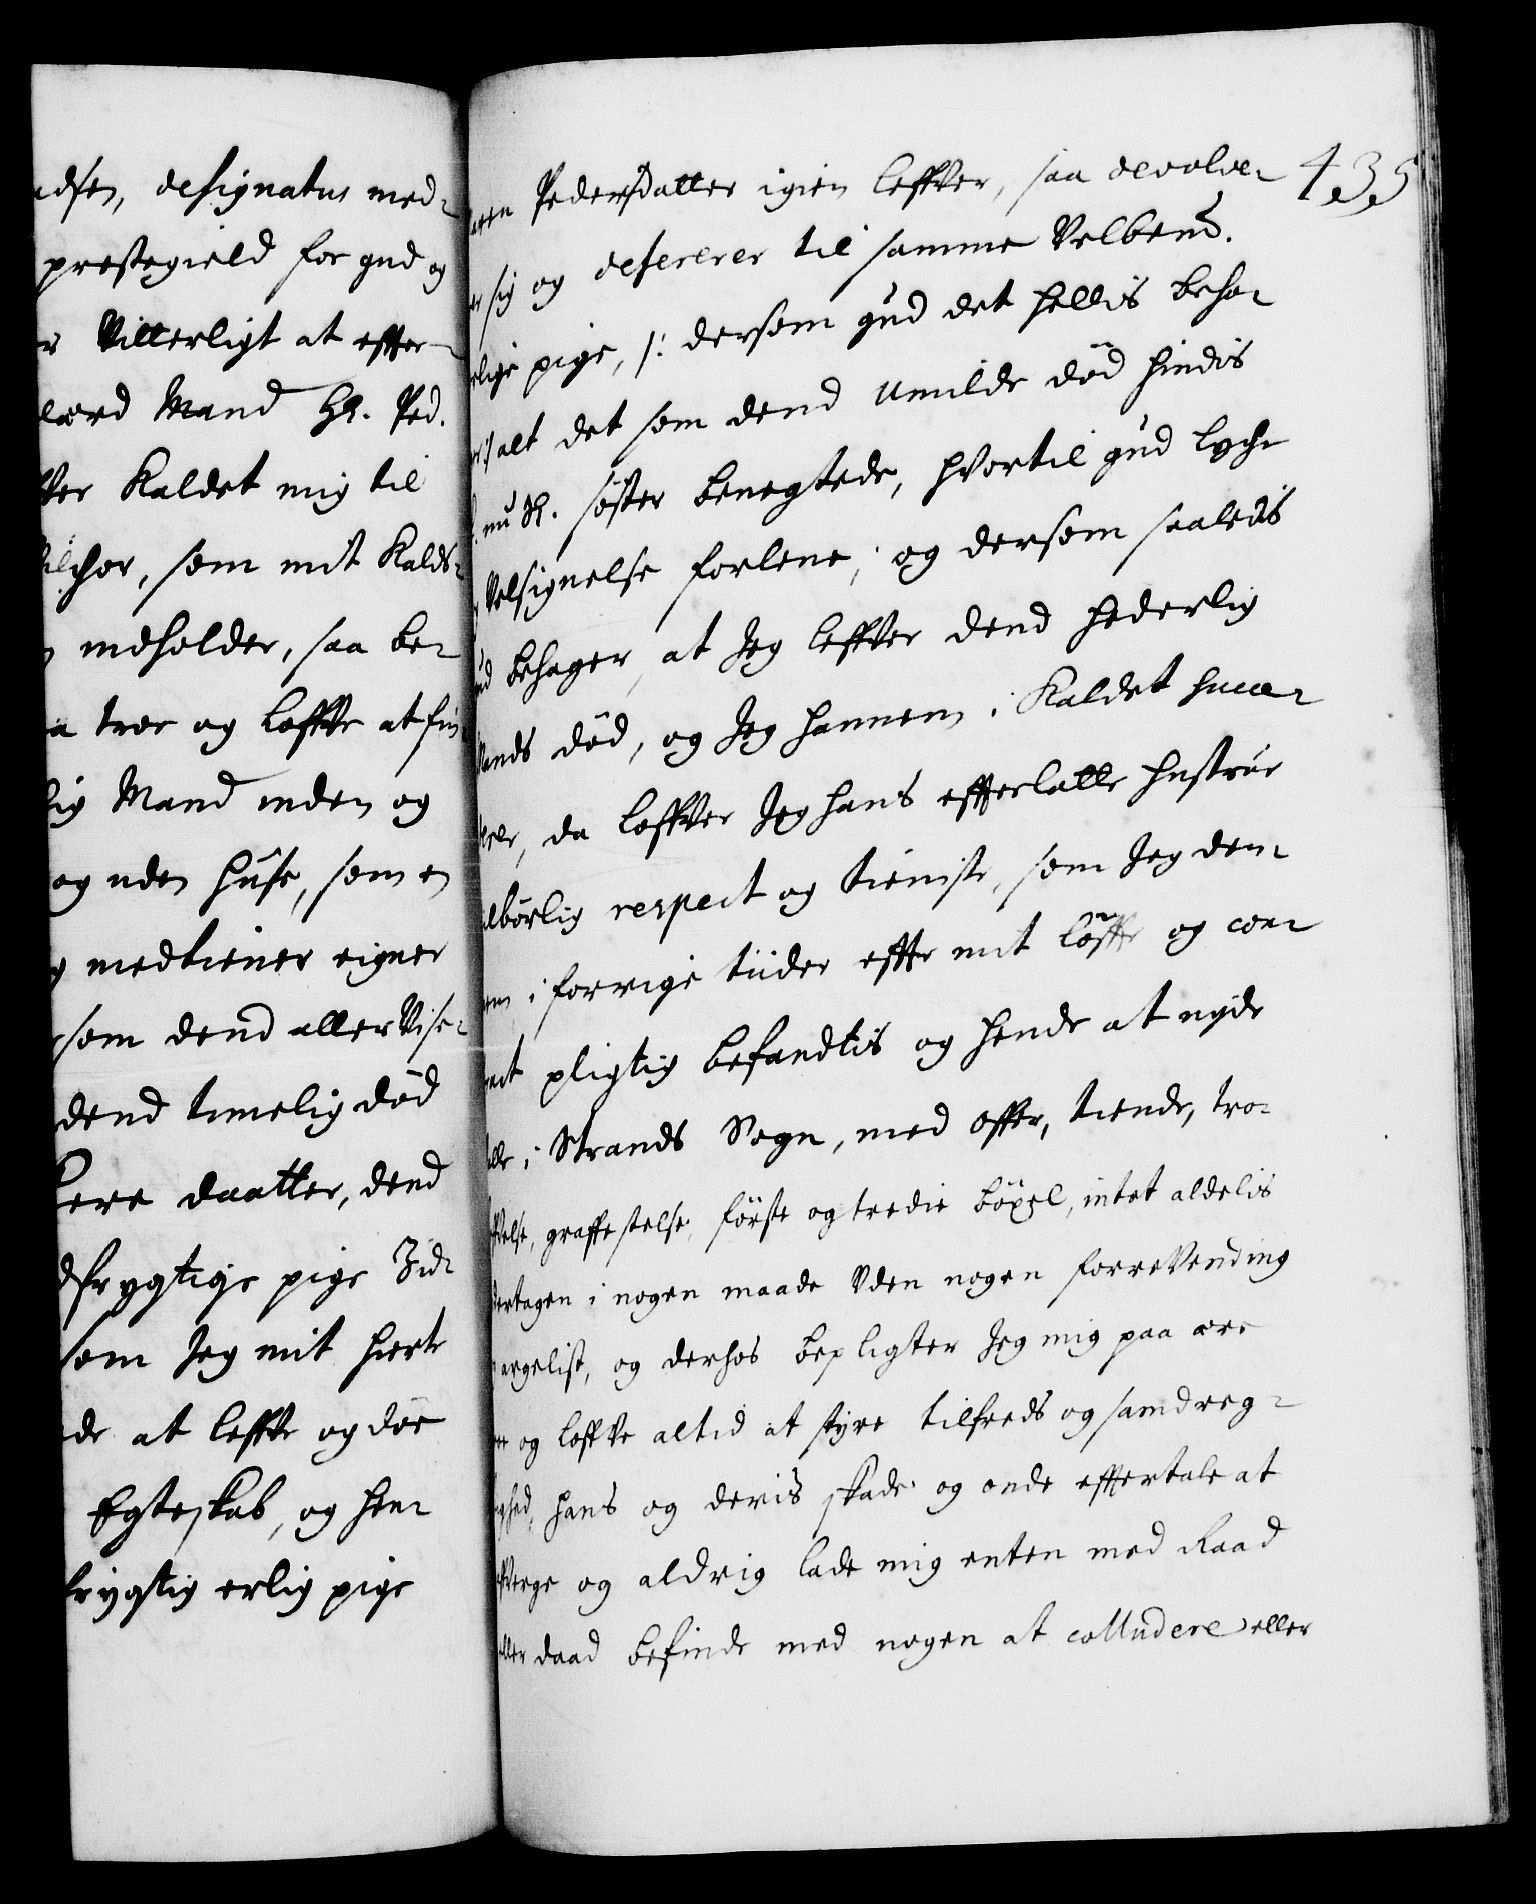 designatus med-
prestegield for gud og
Vitterligt at effter-
lærd Mand Hr. Ped.
Kaldet mig til
som mit Kalds-
indholder, saa be-
troe og loffve at
Mand inden og
og uden huse, som en
medtiener eigner
som dend aller Vise-
dend timelig död
daatter, dend
pige Zid-
som Jeg mit hierte
at leffve og döe
Egteskab, og hen-
erlig pige
435
Pedersdatter igien leffver, saa devolve-
sig og defererer til samme Velbemd.
pige, /: dersom gud det hellis beha-
:/ alt det som dend Umilde död hindis
nu Sl. söster benegtede, hvortil gud lyche
Velsignelse forlene; og dersom saaledis
behager, at Jeg leffver dend hederlig
Mands död, og Jeg hannem i Kaldet succe-
da loffver Jeg hans effterlatte hustrue
respect og tieniste, som Jeg den-
i forrige tiider effter mit löffte og con-
pligtig befandtis og hende at nyde
i Strands Sogn, med offer, tiende, tro-
graffestelse, förste og tredie böxel, intet aldelis
i nogen maade Uden nogen forreVending
argelist, og derhos bepligter Jeg mig paa ære
og loffve altid at styre tilfreds og samdreg-
hans og deris skade og onde effertale at
og aldrig lade mig enten med Raad
eller daad befinde med nogen at colludere eller